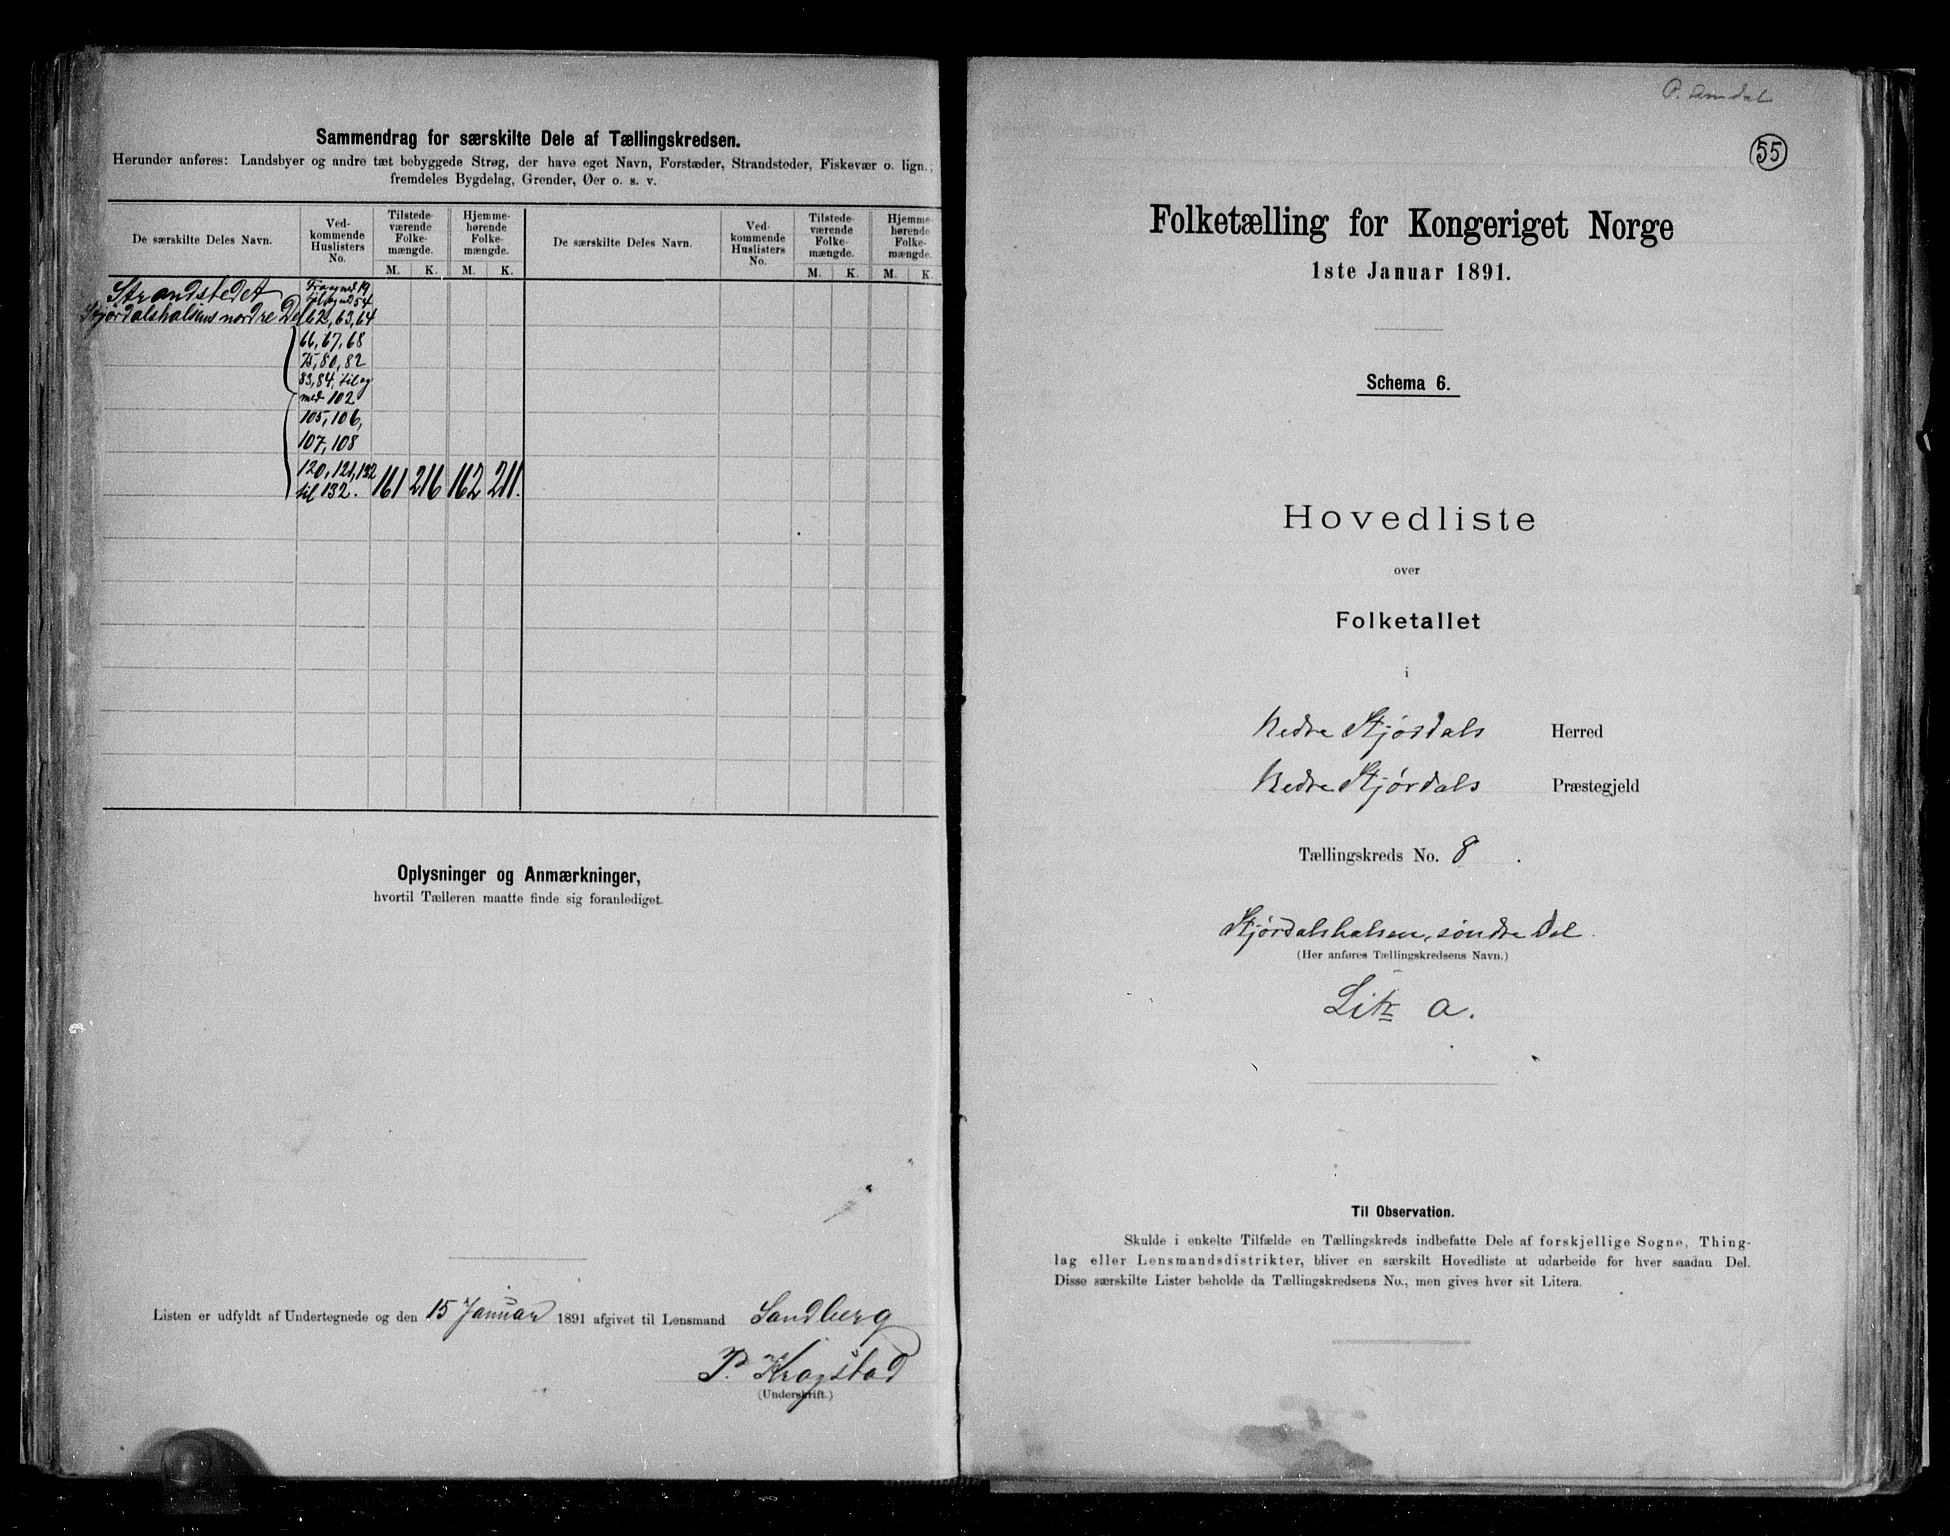 Sammendrag for særskilte Dele af Tællingskredsen.
Herunder anføres: Landsbyer og andre tæt bebyggede Strøg, der have eget Navn, Forstæder, Strandsteder, Fiskevær o. lign.;
fremdeles Bygdelag, Grender, Øer o. s. v.
De særskilte Deles Navn.
Ved-
kommende
Huslisters
No.
Tilstede-
værende
Folke-
mængde.
Hjemme-
hørende
Folke-
mængde.
M. K. M. K.
De særskilte Deles Navn.
Ved-
kommende
Huslisters
No.
Tilstede-
værende
Folke-
mængde.
Hjemme-
hørende
Folke-
mængde.
M. K. M. K.
Strandstedet
Stjørdalshalsens nordre Del
Fra og med 19
til og med 54
62, 63, 64
66, 67, 68
75, 80, 82
83, 84, til og
med 102
105, 106,
107, 108
120, 121, 132
til 132. 161 216 162 211.
Oplysninger og Anmærkninger,
hvortil Tælleren maatte finde sig foranlediget.
Listen er udfyldt af Undertegnede og den 15 Januar 1891 afgivet til Lensmand Sandberg
P. Kragstad
(Underskrift.)
55
Folketælling for Kongeriget Norge
1ste Januar 1891.
Schema 6.
Hovedliste
over
Folketallet
i
Nedre Stjørdals Herred
Nedre Stjørdals Præstegjeld
Tællingskreds No. 8.
Stjørdalshalsen, søndre Del.
(Her anføres Tællingskredsens Navn.)
Litr a.
Til Observation.
Skulde i enkelte Tilfælde en Tællingskreds indbefatte Dele af forskjellige Sogne, Thing-
lag eller Lensmandsdistrikter, bliver en særskilt Hovedliste at udarbeide for hver saadan Del.
Disse særskilte Lister beholde da Tællingskredsens No., men gives hver sit Litera.